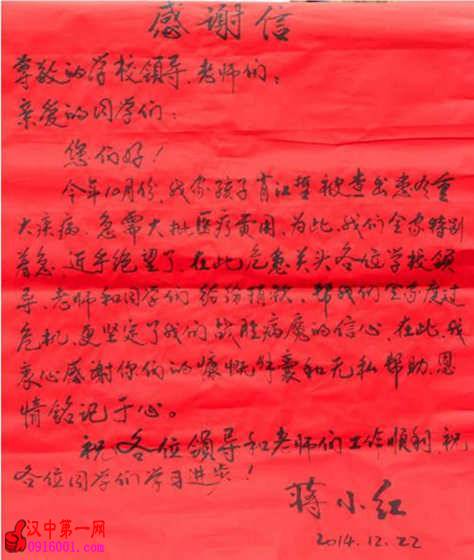 感谢信
尊敬的学校领导、老师们：
亲爱的同学们：
您们好！
今年10月份，我家孩子肖江哲被查出患有重
大疾病，急需大批医疗费用，为此，我们全家特别
着急，近乎绝望了，在此危急关头各位学校领
导、老师和同学们纷纷捐款，帮我们全家度过
危机，更坚定了我们战胜病魔的信心，在此，我
衷心感谢你们的慷慨解囊和无私帮助，恩
情铭记于心。
祝各位领导和老师们工作顺利，祝
各位同学们学习进步！
蒋小红
2014.12.22
汉中第一网
0916001.com